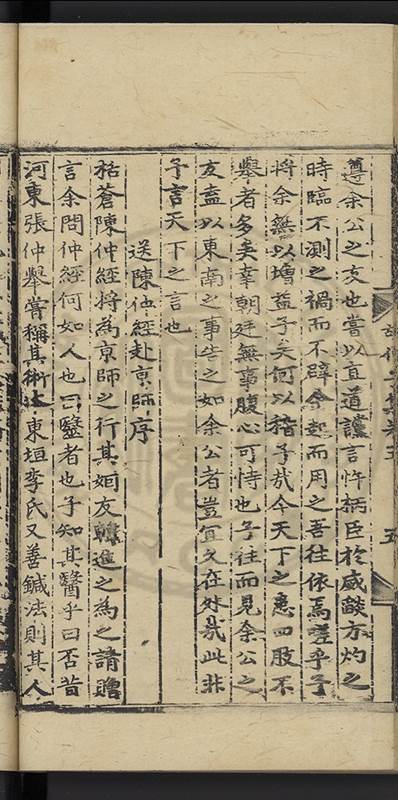 遵余公之友也嘗以直道讜言忤柄臣於威燄方灼之
時臨不測之禍而不辟余起而用之吾往依焉嗟乎子
將余無以增益子矣何以稽子哉今天下之患四肢不
舉者多矣幸朝廷無事腹心可恃也子往而見余公之
友盍以東南之事告之如余公者豈宜久在外哉此非
予言天下之言也
送陳仲經赴京師序
括蒼陳仲經將為京師之行其姻友韓進之為之請贈
言余問仲經何如人也曰醫者也子知其醫乎曰否昔
河東張仲舉嘗稱其術本東垣李氏又善鍼法則其人
集卷五
五